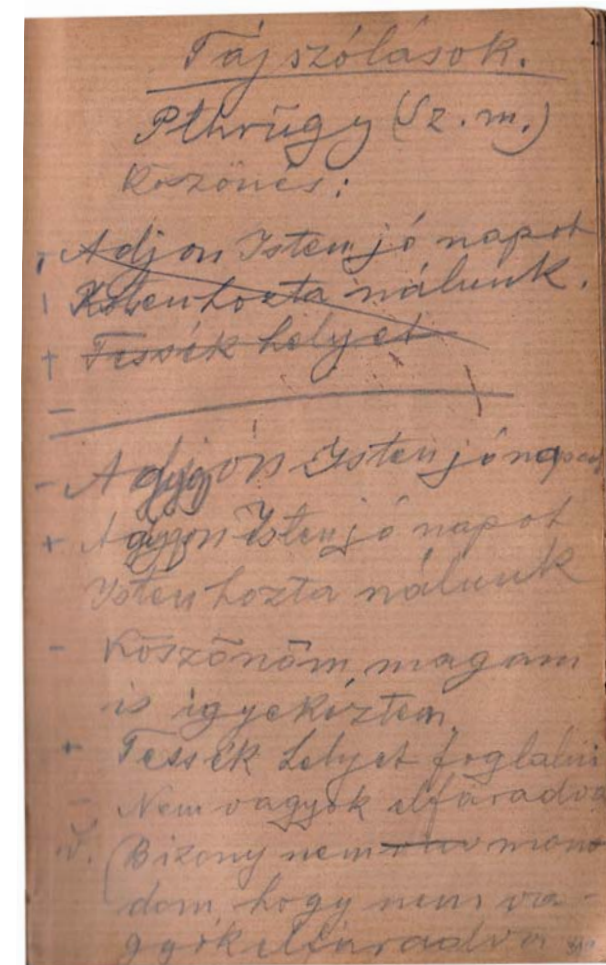 Tájszólások.
Pthrügy (Sz. m.)
Köszönés:
Adjon Isten jó napot
Isten hozta nálunk.
Tessék helyet
- Adjon Isten jó napot
+ Agygyon Isten jó napot
Isten hozta nálunk
- Köszönöm, magam
is igyekeztem,
+ Tessék helyet foglalni
- Nem vagyok elfáradva
(Bizony nem mon
dom, hogy nem va-
gyok elfáradva